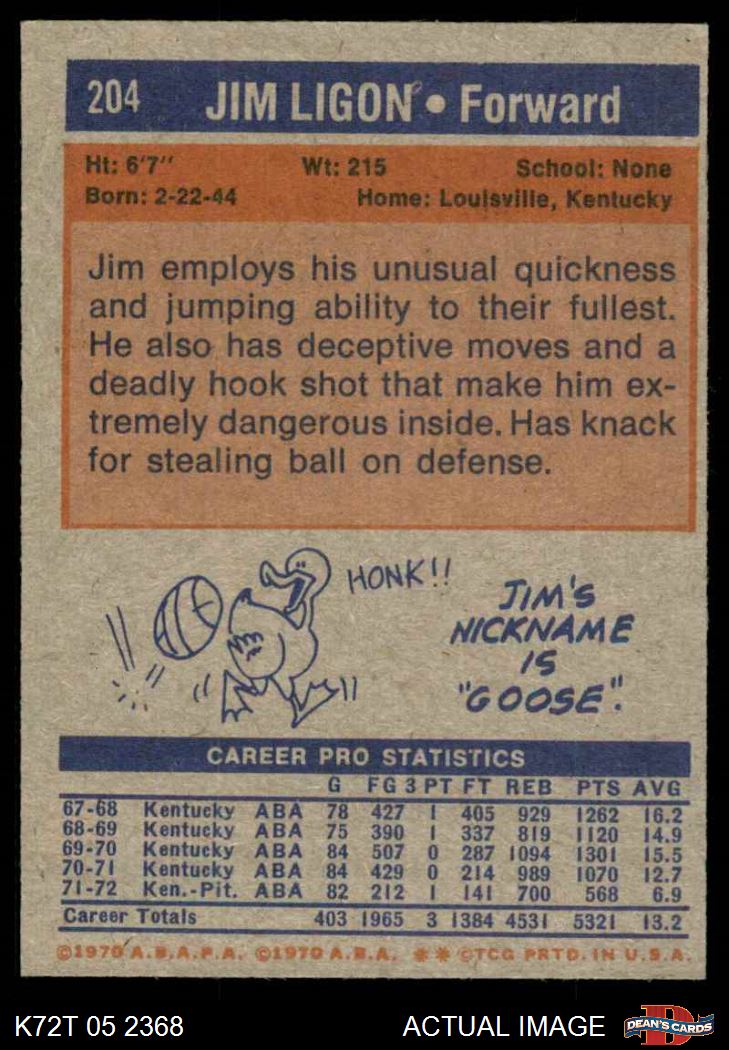 204 JIM LIGON • Forward
Ht: 6'7" Wt: 215 School: None
Born: 2-22-44 Home: Louisville, Kentucky
Jim employs his unusual quickness
and jumping ability to their fullest.
He also has deceptive moves and a
deadly hook shot that make him ex-
tremely dangerous inside. Has knack
for stealing ball on defense.
HONK!!
JIM'S
NICKNAME
IS
"GOOSE".
CAREER PRO STATISTICS
G FG 3 PT FT REB PTS AVG
67-68 Kentucky ABA 78 427 1 405 929 1262 16.2
68-69 Kentucky ABA 75 390 1 337 819 1120 14.9
69-70 Kentucky ABA 84 507 0 287 1094 1301 15.5
70-71 Kentucky ABA 84 429 0 214 989 1070 12.7
71-72 Ken.-Pit. ABA 82 212 1 141 700 568 6.9
Career Totals 403 1965 3 1384 4531 5321 13.2
©1970 A.B.A.P.A. ©1970 A.B.A. ** ©TCG PRTD. IN U.S.A.
K72T 05 2368 ACTUAL IMAGE D DEAN'S CARDS